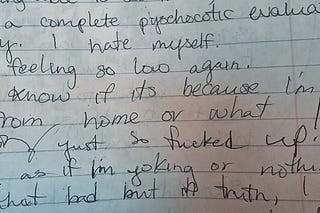 a complete pyschocotic evalua
y. I hate myself.
feeling so low again.
know if its because I'm
rom home or what
just so fucked up!
as if I'm yoking or nothi
that bad but truth, I